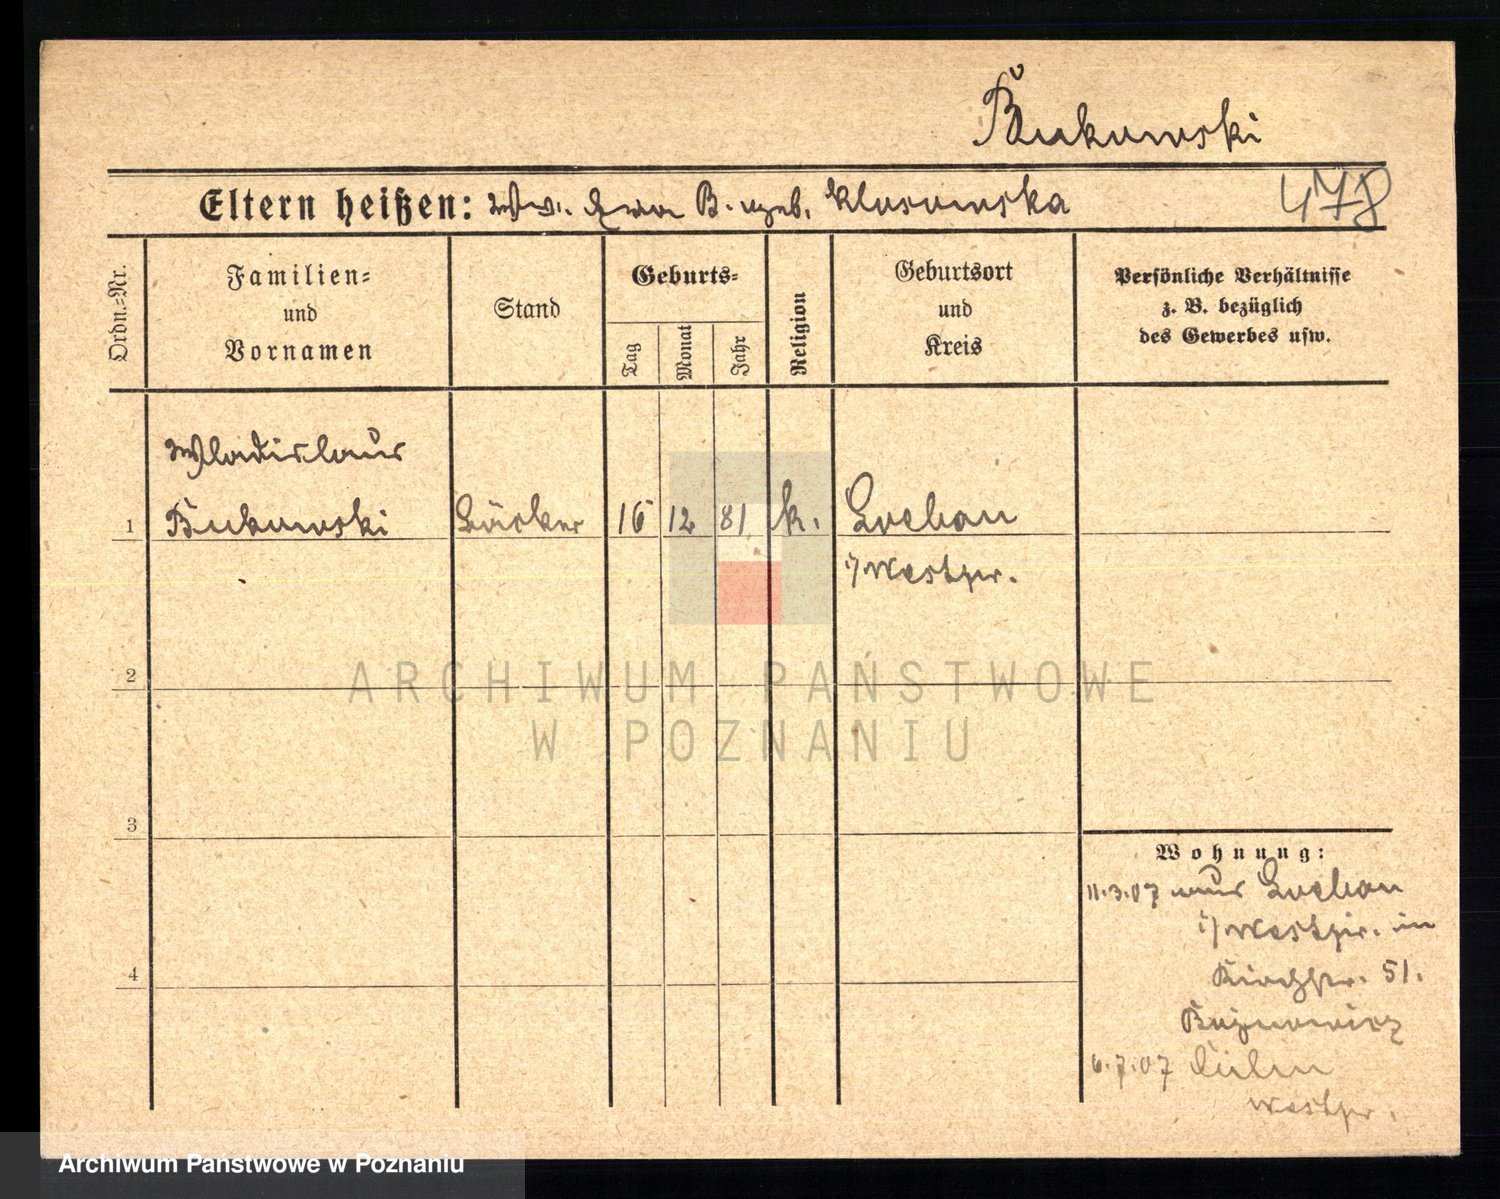 Bukowski
Eltern heißen: Ww. Eva B. geb. Klosowska
478
Ordn.-Nr.
Familien-
und
Vornamen
Stand
Geburts-
Tag
Monat
Jahr
Religion
Geburtsort
und
Kreis
Persönliche Verhältnisse
z. B. bezüglich
des Gewerbes usw.
Wladislaus
1 Bukowski Bäcker 16 12 81 k. Loebau
i/Westpr.
2
3
4
Wohnung:
11.3.07 aus Loebau
i/Westpr. in
Kirchstr. 51.
6.7.07 Culm
Westpr.
ARCHIWUM PAŃSTWOWE
W POZNANIU
Archiwum Państwowe w Poznaniu